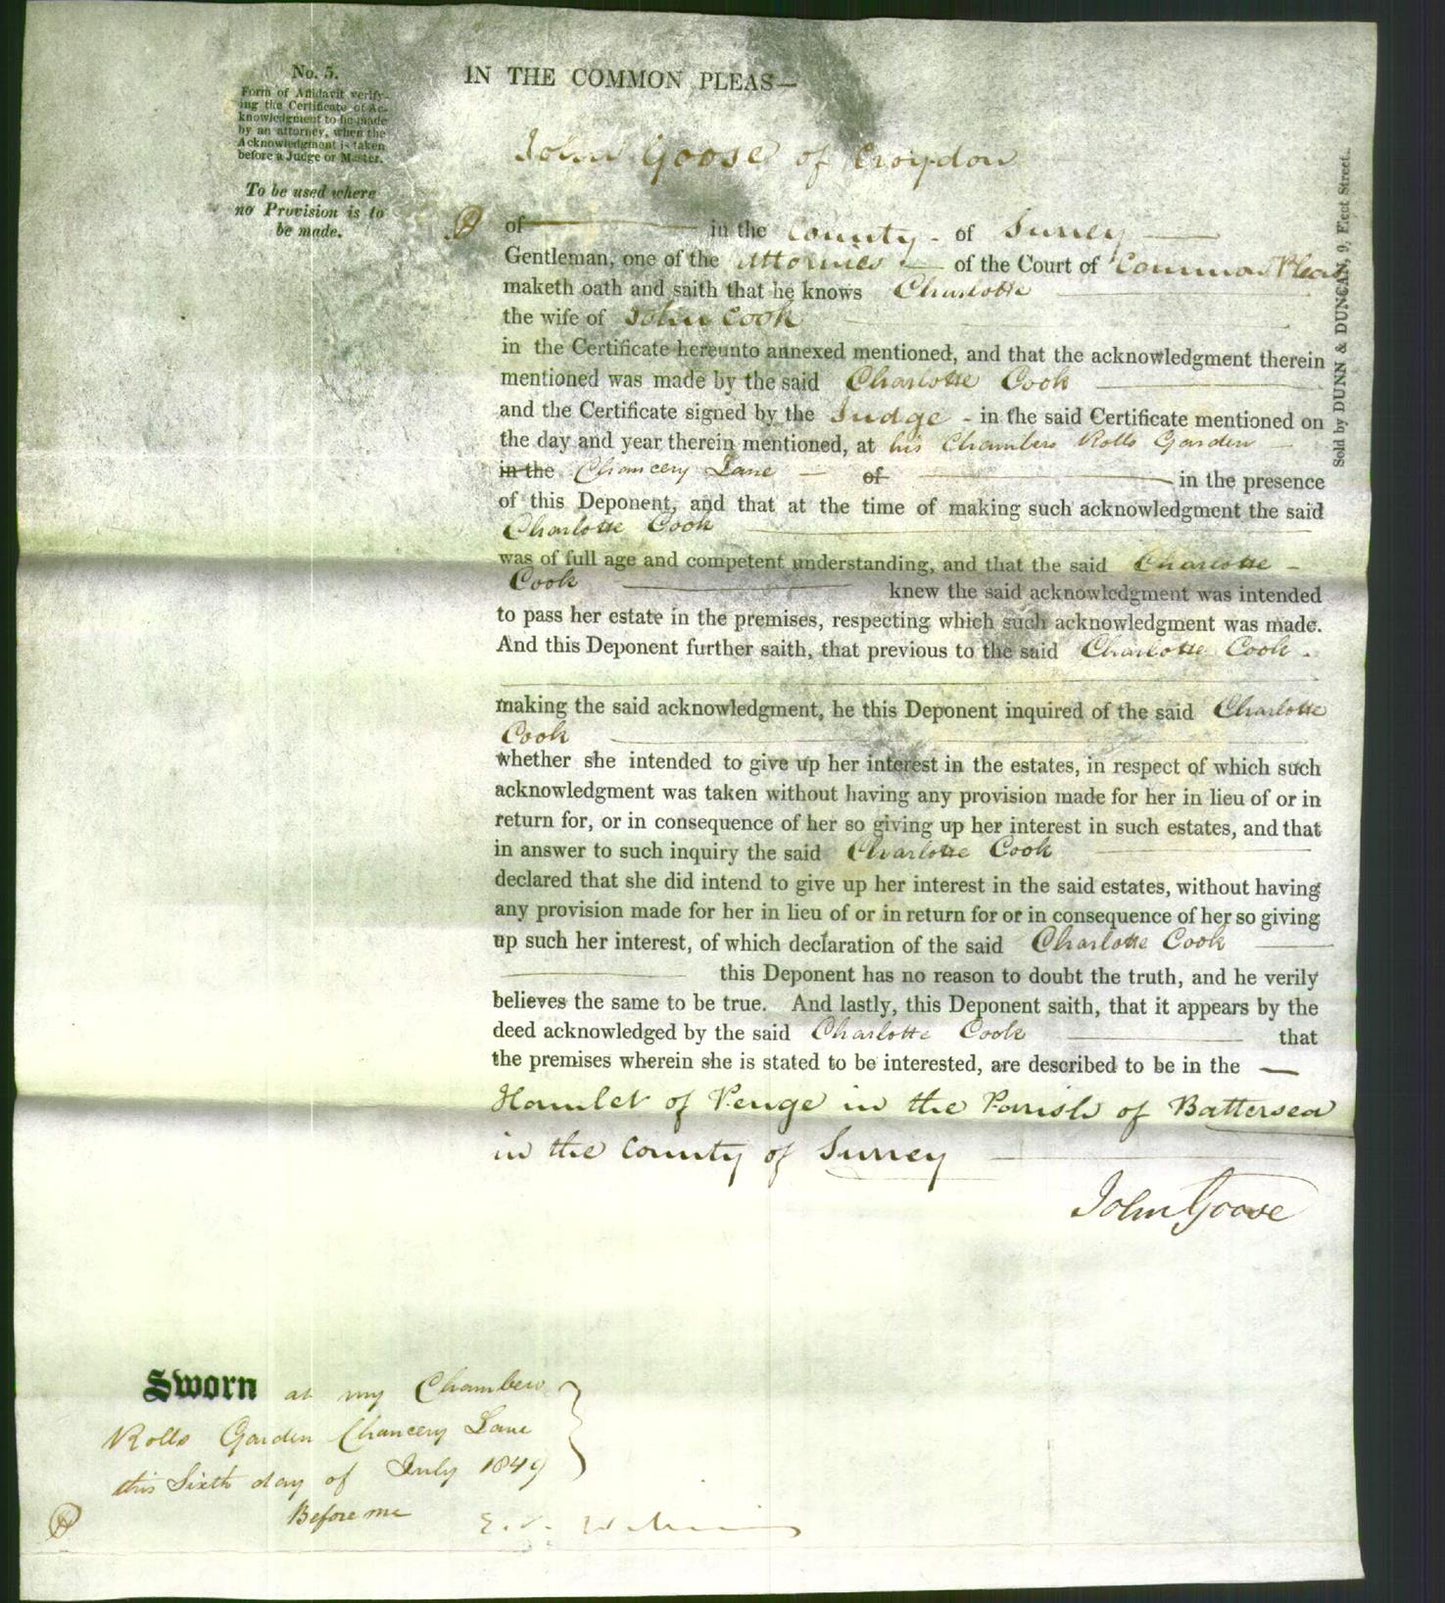 No. 5.
Form of Affidavit verify-
ing the Certificate of Ac-
knowledgment to be made
by an attorney, when the
Acknowledgment is taken
before a Judge or Master.
To be used where
no Provision is to
be made.
IN THE COMMON PLEAS—
John Goose of Croydon
of in the County of Surrey
Gentleman, one of the Attornies of the Court of Common Pleas
maketh oath and saith that he knows Charlotte
the wife of John Cook
in the Certificate hereunto annexed mentioned, and that the acknowledgment therein
mentioned was made by the said Charlotte Cook
and the Certificate signed by the Judge - in the said Certificate mentioned on
the day and year therein mentioned, at his Chambers Rolls Garden
in the Chancery Lane — of in the presence
of this Deponent, and that at the time of making such acknowledgment the said
Charlotte Cook
was of full age and competent understanding, and that the said Charlotte -
Cook knew the said acknowledgment was intended
to pass her estate in the premises, respecting which such acknowledgment was made.
And this Deponent further saith, that previous to the said Charlotte Cook -
making the said acknowledgment, he this Deponent inquired of the said Charlotte
Cook
whether she intended to give up her interest in the estates, in respect of which such
acknowledgment was taken without having any provision made for her in lieu of or in
return for, or in consequence of her so giving up her interest in such estates, and that
in answer to such inquiry the said Charlotte Cook
declared that she did intend to give up her interest in the said estates, without having
any provision made for her in lieu of or in return for or in consequence of her so giving
up such her interest, of which declaration of the said Charlotte Cook
this Deponent has no reason to doubt the truth, and he verily
believes the same to be true. And lastly, this Deponent saith, that it appears by the
deed acknowledged by the said Charlotte Cook that
the premises wherein she is stated to be interested, are described to be in the —
Hamlet of Penge in the Parish of Battersea
in the County of Surrey
John Goose
Sworn at my Chambers
Rolls Garden Chancery Lane
this Sixth day of July 1849
Before me
Sold by DUNN & DUNCAN, 9, Fleet Street.